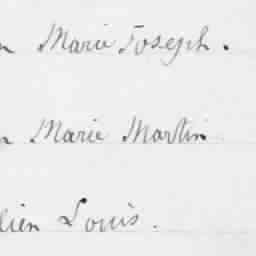 n Marie Joseph.
n Marie Martin
lien Louis.